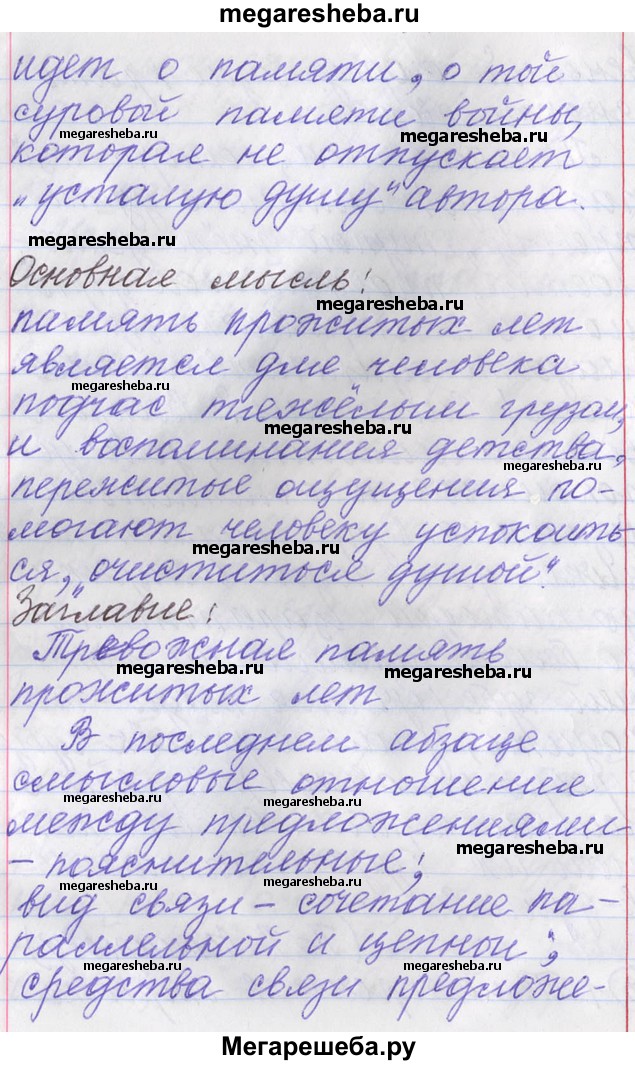 megaresheba.ru
идет о памяти, о той
суровой памяти войны,
megaresheba.ru megaresheba.ru
которая не отпускает
„усталую душу“ автора.
megaresheba.ru
Основная мысль:
megaresheba.ru
память прожитых лет
является для человека
megaresheba.ru
подчас тяжёлым грузом,
megaresheba.ru
и воспоминания детства,
megaresheba.ru
пережитые ощущения по-
могают человеку успокоить-
megaresheba.ru
ся, „очиститься душой“.
Заглавие:
Тревожная память
megaresheba.ru megaresheba.ru
прожитых лет
В последнем абзаце
смысловые отношения
megaresheba.ru megaresheba.ru
между предложениями
megaresheba.ru
– пояснительные;
megaresheba.ru megaresheba.ru
вид связи – сочетание па-
раллельной и цепной;
megaresheba.ru megaresheba.ru
средства связи предложе-
Мегарешеба.ру